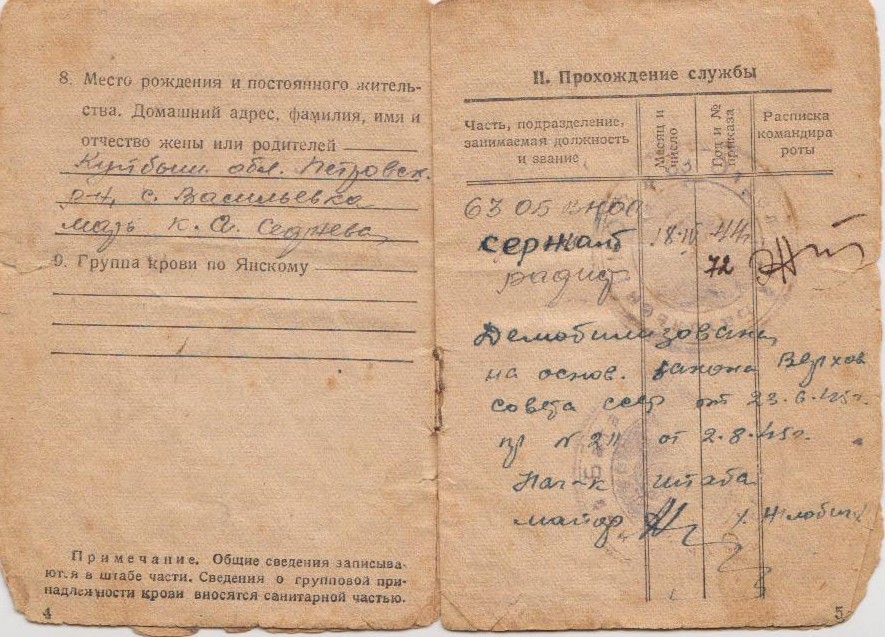 8. Место рождения и постоянного житель-
ства. Домашний адрес, фамилия, имя и
отчество жены или родителей
обл. Петровск.
с. Васильевка
К. А.
9. Группа крови по Янскому
Примечание. Общие сведения записыва-
ются в штабе части. Сведения о групповой при-
надлежности крови вносятся санитарной частью.
4
II. Прохождение службы
Часть, подразделение,
занимаемая должность
и звание
Месяц и
число
Год и №
приказа
Расписка
командира
роты
63
сержант 18.IV 44г
72
радист
Демобилизована
на основ. закона Верхов
совета ссср от 23.6.45г.
пр № от 2.8.45г.
Нач-к штаба
майор
5